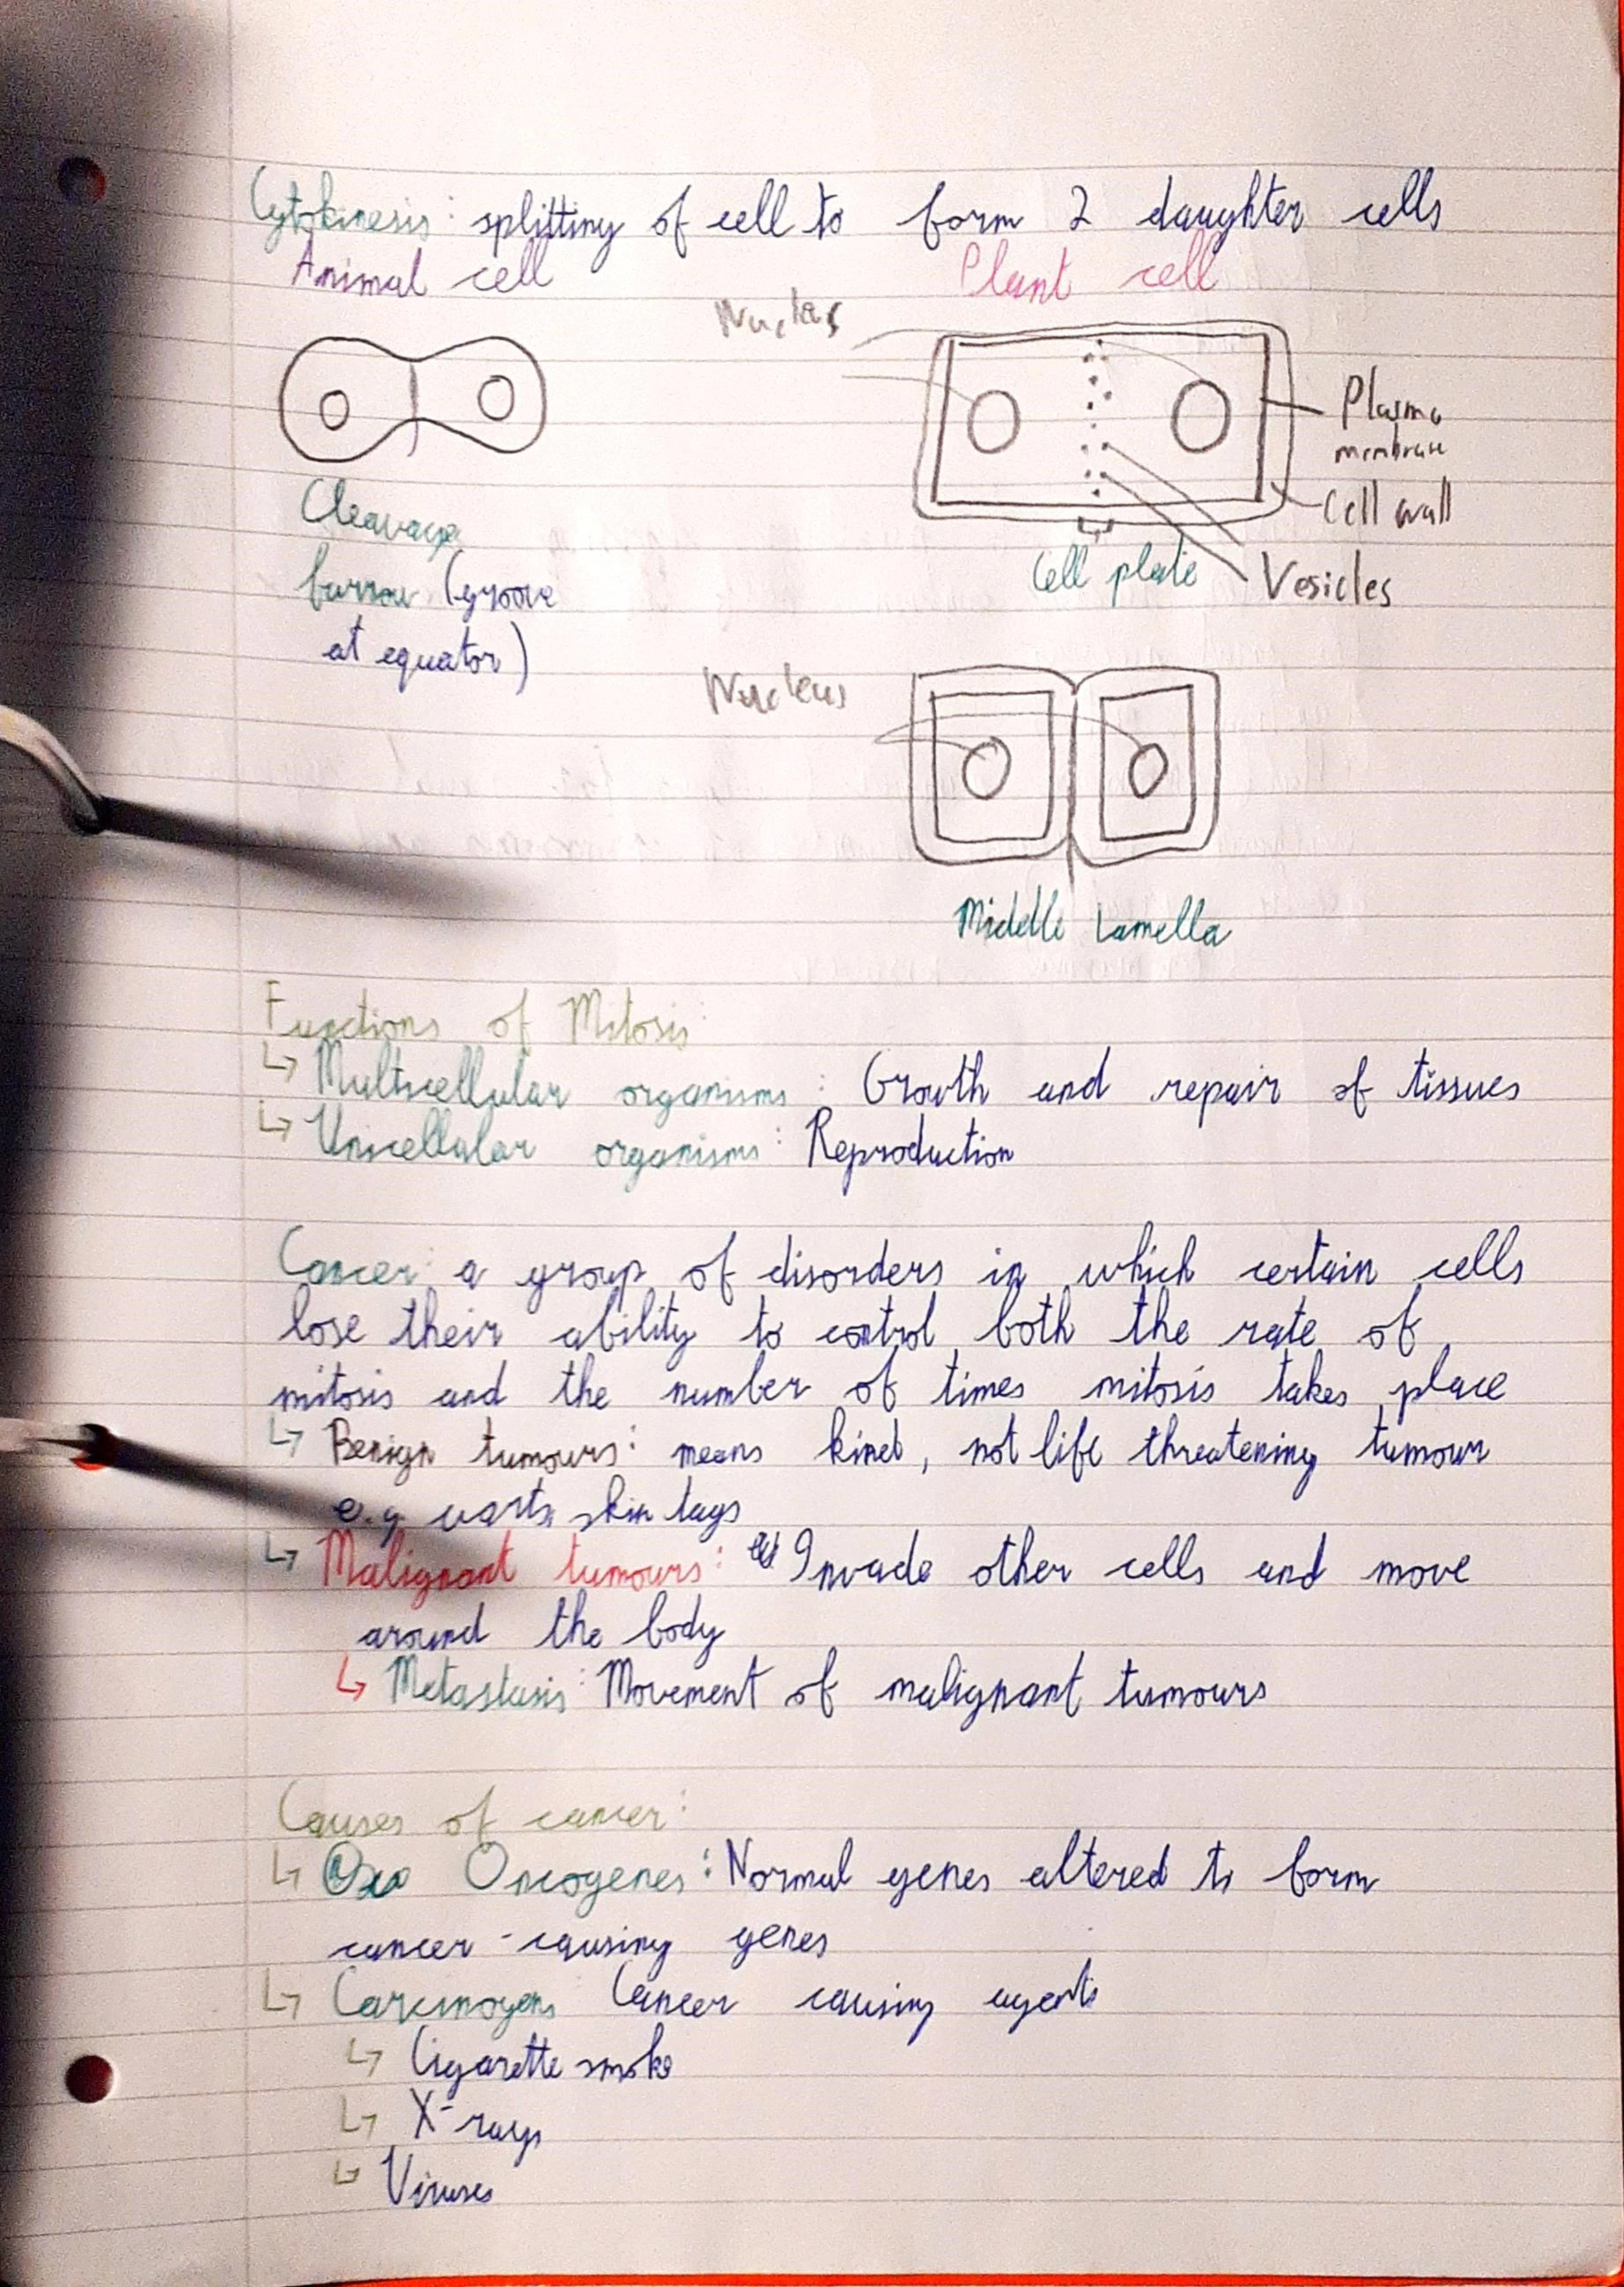 Cytokinesis: splitting of cell to form 2 daughter cells
Animal cell Plant cell
Nucleus
Plasma
membrane
Cell wall
Cleavage
furrow (groove
at equator)
Cell plate
Vesicles
Nucleus
Middle Lamella
Functions of Mitosis:
↳ Multicellular organisms: Growth and repair of tissues
↳ Unicellular organisms: Reproduction
Cancer: a group of disorders in which certain cells
lose their ability to control both the rate of
mitosis and the number of times mitosis takes place
↳ Benign tumours: means kind, not life threatening tumour
e.g. warts, skin tags
↳ Malignant tumours: Invade other cells and move
around the body
↳ Metastasis: Movement of malignant tumours
Causes of cancer:
↳ Oncogenes: Normal genes altered to form
cancer-causing genes
↳ Carcinogens Cancer causing agents
↳ Cigarette smoke
↳ X-rays
↳ Viruses